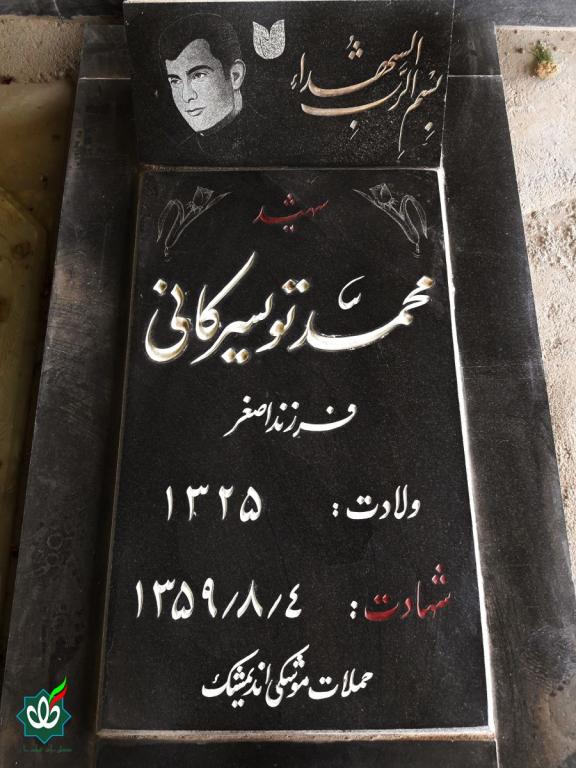 بسم الرب الشهداء
شهید
محمد تویسرکانی
فرزند اصغر
ولادت: ۱۳۲۵
شهادت: ۱۳۵۹/۸/٤
حملات موشکی اندیمشک